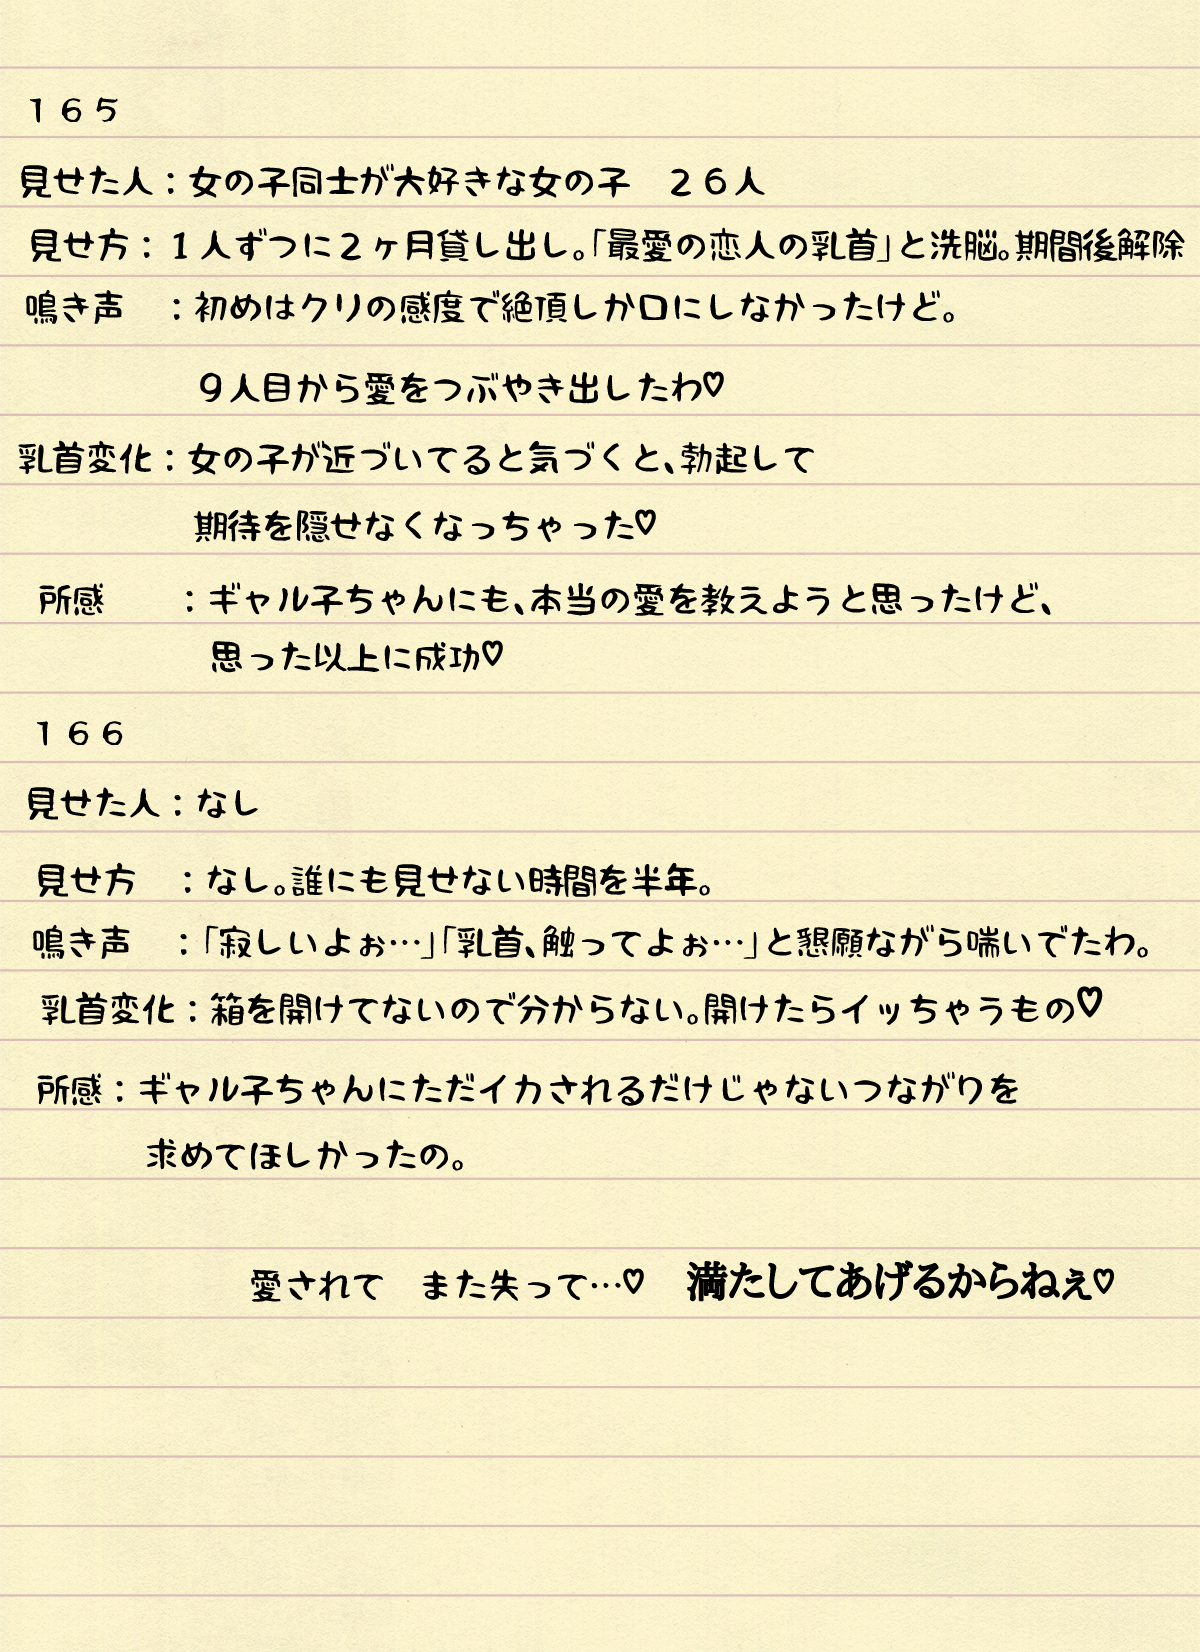 165
見せた人：女の子同士が大好きな女の子　26人
見せ方：1人ずつに2ヶ月貸し出し。「最愛の恋人の乳首」と洗脳。期間後解除
鳴き声　：初めはクリの感度で絶頂しか口にしなかったけど。
9人目から愛をつぶやき出したわ♡
乳首変化：女の子が近づいてると気づくと、勃起して
期待を隠せなくなっちゃった♡
所感　　：ギャル子ちゃんにも、本当の愛を教えようと思ったけど、
思った以上に成功♡
166
見せた人：なし
見せ方　：なし。誰にも見せない時間を半年。
鳴き声　：「寂しいよぉ…」「乳首、触ってよぉ…」と懇願ながら喘いでたわ。
乳首変化：箱を開けてないので分からない。開けたらイッちゃうもの♡
所感：ギャル子ちゃんにただイカされるだけじゃないつながりを
求めてほしかったの。
愛されて　また失って…♡　満たしてあげるからねぇ♡